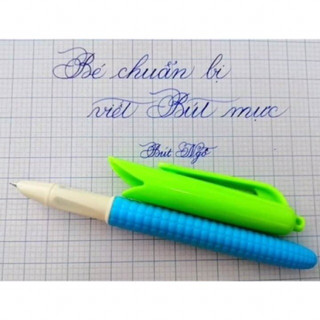 Bé chuẩn bị
viết Bút mực
Bút Ngô